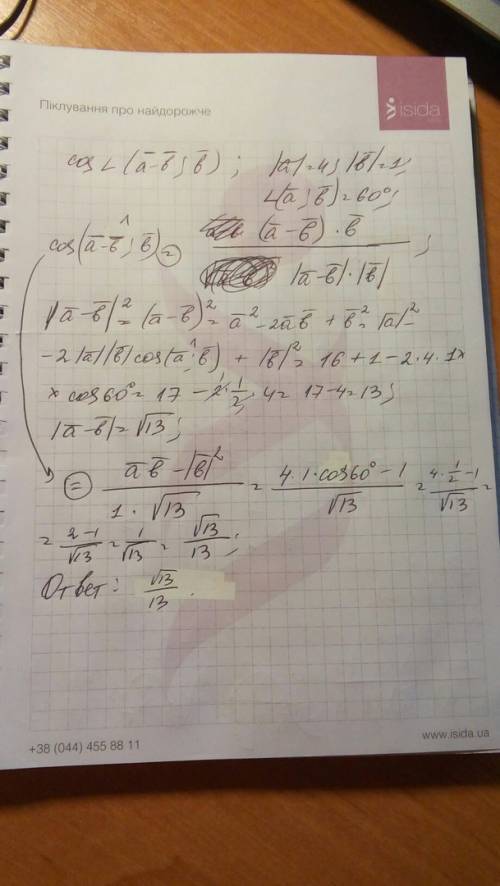 Піклування про найдорожче
isida
cos∠(a̅-b̅; b̅); |a̅|=4; |b̅|=1;
∠(a̅; b̅)=60°;
cos(a̅-b̅ ^; b̅) = (a̅-b̅)·b̅ / |a̅-b̅|·|b̅| ;
|a̅-b̅|² = (a̅-b̅)² = a̅² - 2a̅b̅ + b̅² = |a̅|² -
-2|a̅||b̅|cos(a̅ ^; b̅) + |b̅|² = 16+1-2·4·1×
× cos60° = 17 - 2·1/2·4 = 17-4 = 13;
|a̅-b̅| = √13;
= a̅b̅ - |b̅|² / 1·√13 = 4·1·cos60°-1 / √13 = 4·1/2-1 / √13 =
= 2-1/√13 = 1/√13 = √13/13;
Ответ: √13/13.
www.isida.ua
+38 (044) 455 88 11